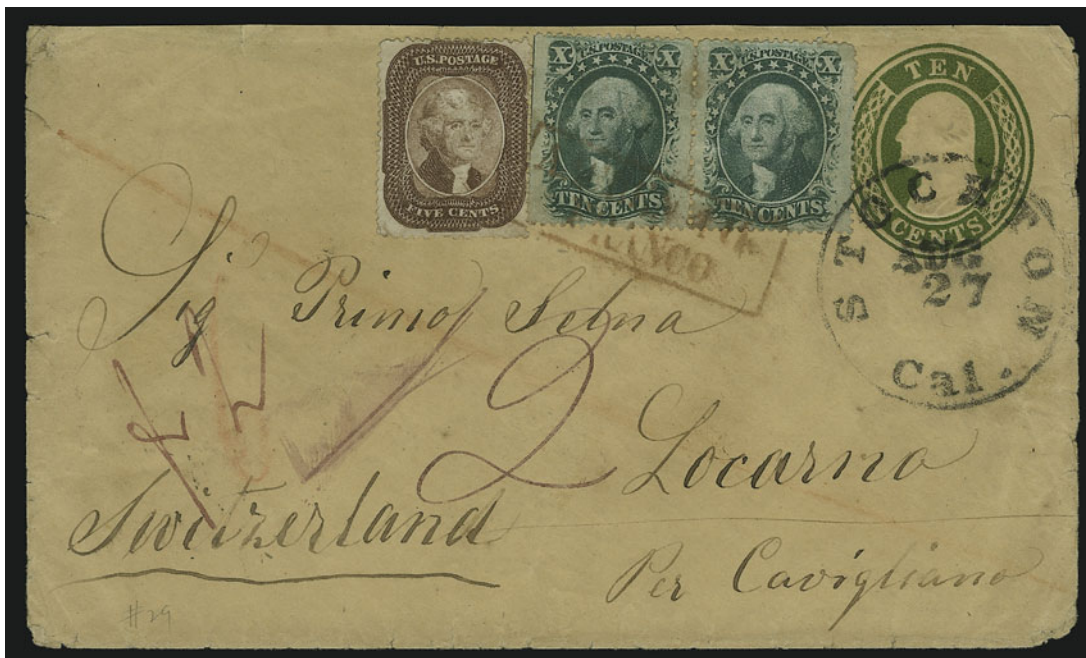 U.S. POSTAGE
FIVE CENTS
X U.S. POSTAGE X
TEN CENTS
X U.S. POSTAGE X
TEN CENTS
TEN
CENTS
STOCKTON
AUG
27
Cal.
FRANCO
Sig Primo Selna
2
Locarno
Switzerland
Per Cavigliano
#29